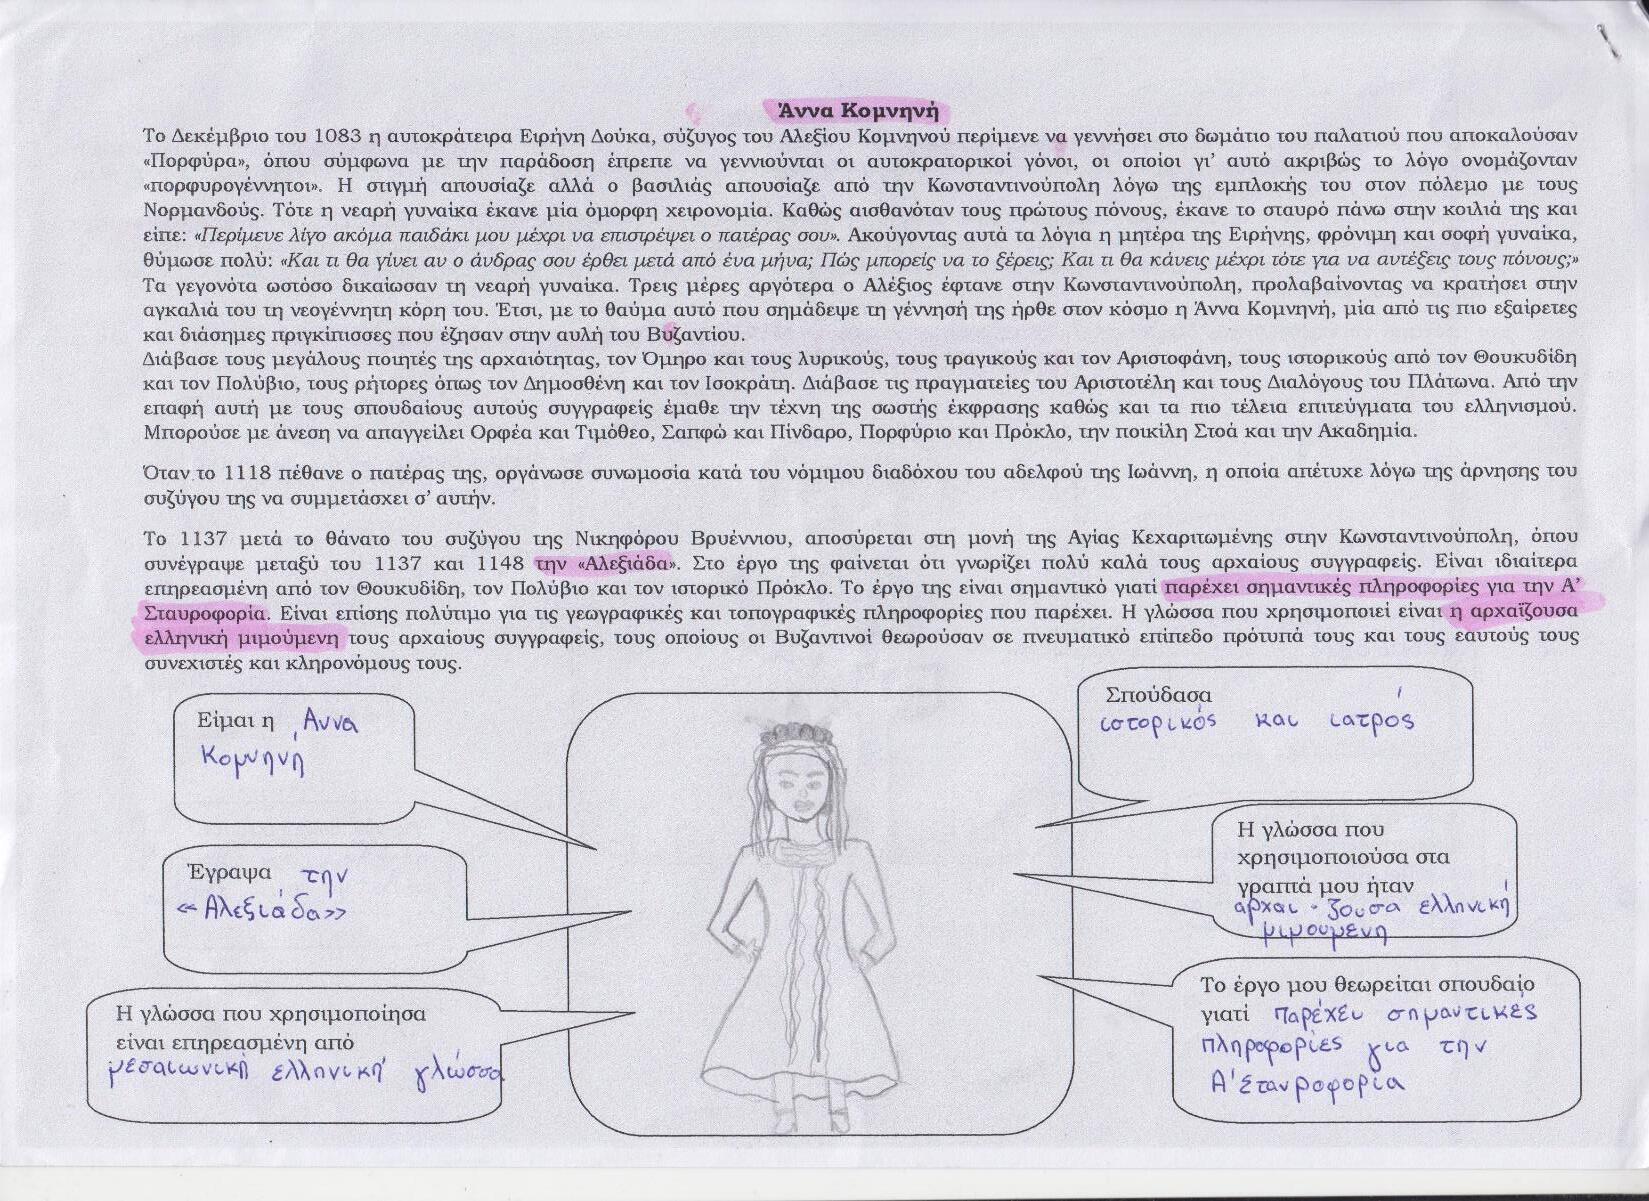 Άννα Κομνηνή
Το Δεκέμβριο του 1083 η αυτοκράτειρα Ειρήνη Δούκα, σύζυγος του Αλεξίου Κομνηνού περίμενε να γεννήσει στο δωμάτιο του παλατιού που αποκαλούσαν
«Πορφύρα», όπου σύμφωνα με την παράδοση έπρεπε να γεννιούνται οι αυτοκρατορικοί γόνοι, οι οποίοι γι' αυτό ακριβώς το λόγο ονομάζονταν
«πορφυρογέννητοι». Η στιγμή απουσίαζε αλλά ο βασιλιάς απουσίαζε από την Κωνσταντινούπολη λόγω της εμπλοκής του στον πόλεμο με τους
Νορμανδούς. Τότε η νεαρή γυναίκα έκανε μία όμορφη χειρονομία. Καθώς αισθανόταν τους πρώτους πόνους, έκανε το σταυρό πάνω στην κοιλιά της και
είπε: «Περίμενε λίγο ακόμα παιδάκι μου μέχρι να επιστρέψει ο πατέρας σου». Ακούγοντας αυτά τα λόγια η μητέρα της Ειρήνης, φρόνιμη και σοφή γυναίκα,
θύμωσε πολύ: «Και τι θα γίνει αν ο άνδρας σου έρθει μετά από ένα μήνα; Πώς μπορείς να το ξέρεις; Και τι θα κάνεις μέχρι τότε για να αντέξεις τους πόνους;»
Τα γεγονότα ωστόσο δικαίωσαν τη νεαρή γυναίκα. Τρεις μέρες αργότερα ο Αλέξιος έφτανε στην Κωνσταντινούπολη, προλαβαίνοντας να κρατήσει στην
αγκαλιά του τη νεογέννητη κόρη του. Έτσι, με το θαύμα αυτό που σημάδεψε τη γέννησή της ήρθε στον κόσμο η Άννα Κομνηνή, μία από τις πιο εξαίρετες
και διάσημες πριγκίπισσες που έζησαν στην αυλή του Βυζαντίου.
Διάβασε τους μεγάλους ποιητές της αρχαιότητας, τον Όμηρο και τους λυρικούς, τους τραγικούς και τον Αριστοφάνη, τους ιστορικούς από τον Θουκυδίδη
και τον Πολύβιο, τους ρήτορες όπως τον Δημοσθένη και τον Ισοκράτη. Διάβασε τις πραγματείες του Αριστοτέλη και τους Διαλόγους του Πλάτωνα. Από την
επαφή αυτή με τους σπουδαίους αυτούς συγγραφείς έμαθε την τέχνη της σωστής έκφρασης καθώς και τα πιο τέλεια επιτεύγματα του ελληνισμού.
Μπορούσε με άνεση να απαγγείλει Ορφέα και Τιμόθεο, Σαπφώ και Πίνδαρο, Πορφύριο και Πρόκλο, την ποικίλη Στοά και την Ακαδημία.
Όταν το 1118 πέθανε ο πατέρας της, οργάνωσε συνωμοσία κατά του νόμιμου διαδόχου του αδελφού της Ιωάννη, η οποία απέτυχε λόγω της άρνησης του
συζύγου της να συμμετάσχει σ' αυτήν.
Το 1137 μετά το θάνατο του συζύγου της Νικηφόρου Βρυέννιου, αποσύρεται στη μονή της Αγίας Κεχαριτωμένης στην Κωνσταντινούπολη, όπου
συνέγραψε μεταξύ του 1137 και 1148 την «Αλεξιάδα». Στο έργο της φαίνεται ότι γνωρίζει πολύ καλά τους αρχαίους συγγραφείς. Είναι ιδιαίτερα
επηρεασμένη από τον Θουκυδίδη, τον Πολύβιο και τον ιστορικό Πρόκλο. Το έργο της είναι σημαντικό γιατί παρέχει σημαντικές πληροφορίες για την Α'
Σταυροφορία. Είναι επίσης πολύτιμο για τις γεωγραφικές και τοπογραφικές πληροφορίες που παρέχει. Η γλώσσα που χρησιμοποιεί είναι η αρχαΐζουσα
ελληνική μιμούμενη τους αρχαίους συγγραφείς, τους οποίους οι Βυζαντινοί θεωρούσαν σε πνευματικό επίπεδο πρότυπά τους και τους εαυτούς τους
συνεχιστές και κληρονόμους τους.
Είμαι η Άννα
Κομνηνή
Έγραψα την
«Αλεξιάδα»
Η γλώσσα που χρησιμοποίησα
είναι επηρεασμένη από
μεσαιωνική ελληνική γλώσσα
Σπούδασα
ιστορικός και ιατρός
Η γλώσσα που
χρησιμοποιούσα στα
γραπτά μου ήταν
αρχαι-ζουσα ελληνική
μιμούμενη
Το έργο μου θεωρείται σπουδαίο
γιατί παρέχει σημαντικές
πληροφορίες για την
Α' Σταυροφορία